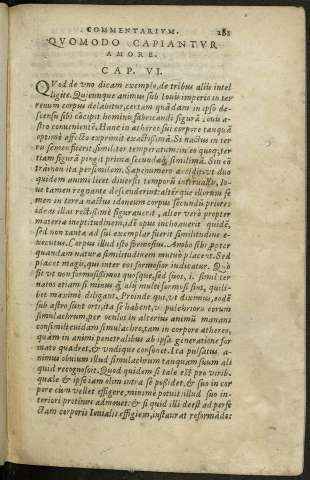 COMMENTARIVM. 282
QVOMODO CAPIANTVR
AMORE.
CAP. VI.
QVod de vno dicam exemplo, de tribus aliis intel
ligite. Quicunque animus sub Iouis imperio in ter
renum corpus delabitur, certam quãdam in ipso de-
scensu sibi cõcipit hominis fabricandi figurã Iouis a-
stro conueniẽtẽ. Hanc in æthereo sui corpore tanquã
optimè affecto exprimit exactissimã. Si nactus in ter-
ris semẽ fuerit similiter temperatum: in eo quoq; ter
tiam figurã pingit primæ secundæq́; simillimã. Sin cõ
tra non ita persimilem. Sæpenumero accidit vt duo
quidem animi licet diuersis temporũ interuallis, Io-
ue tamen regnante descenderint: alterque illorum se
men in terra nactus idoneum corpus secundũ priores
ideas illas rectissimè figurauerit, alter verò propter
materiæ ineptitudinem, idẽ opus inchoauerit quidẽ,
sed non tanta ad sui exemplar fuerit similitudine e-
xecutus. Corpus illud isto formosius. Ambo sibi propter
quandam naturæ similitudinem mutuò placent. Sed
placet magis, qui inter eos formosior iudicatur. Quo
fit vt non formosissimos quosque, sed suos, i. simili ter
natos etiam si minus q̃ alij multi formosi sint, quili-
bet maximè diligant. Proinde qui, vt diximus, eodẽ
sub astro sunt orti, ita se habent, vt pulchrioris eorum
simulachrum, per oculos in alterius animũ manans
consimili cuidam simulachro, tam in corpore æthereo,
quàm in animi penetralibus ab ipsa generatione for
mato quadret, & vndique consonet. Ita pulsatus a-
nimus obuium illud simulachrum tanquam suum ali
quid recognoscit. Quod quidem si tale est pro virib.
quale & ipse iam olim intra se possidet, & suo in cor
pore cùm vellet effigere, minimè potuit illud suo in-
teriori protinus admouet: & si quid illi deest ad perfe
ctam corporis Iouialis effigiem, instaurat reformãdo: